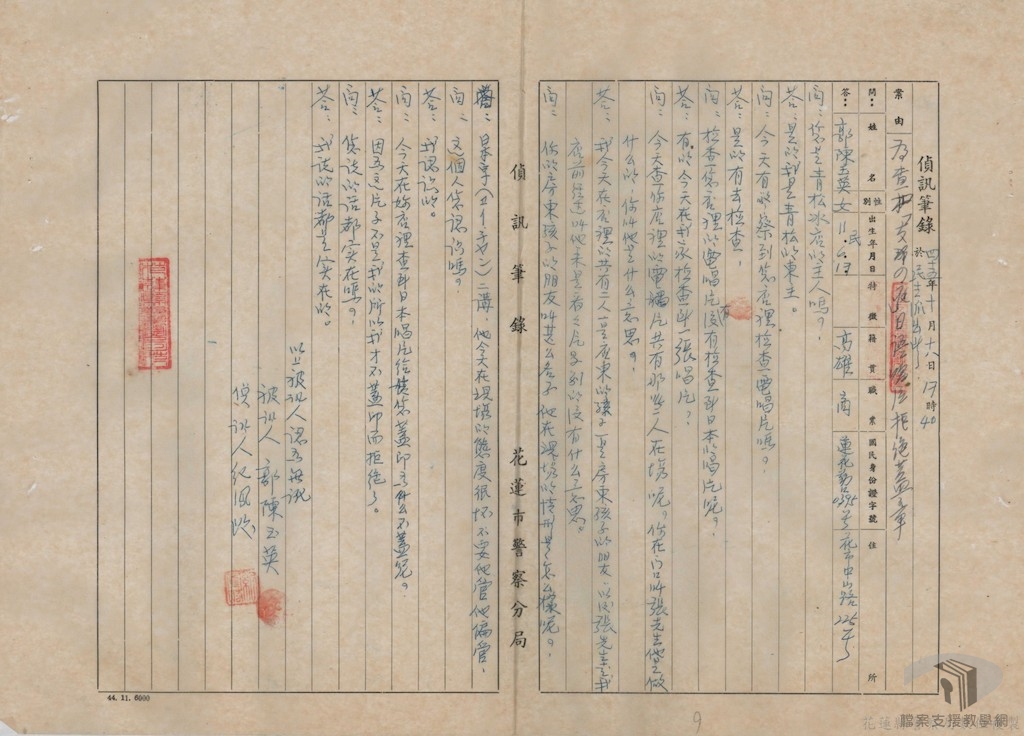 偵訊筆錄 四五年十月十八日17時40
於
案由 為查扣 日語唱片拒絕蓋章
問： 姓名 性別 出生年月日 特徵 籍貫 職業 國民身份證字號 住所
答： 郭陳玉英 女 民11.6.13 高雄 商 蓮花 0395号 花市中山路225号
問：您是青松冰店的主人嗎？
答：是的我是青松的東主
問：今天有警察到您店裡檢查電唱片嗎？
答：是的有去檢查，
問：檢查您店裡的電唱片沒有檢查到日本的唱片呢？
答：有的今天在我家檢查到一張唱片？
問：今天查你店裡的電唱片共有那些人在場呢？你在口叫張先生他是做
什么的，你叫他是什么意思。
答：我今天在店裡的共有二人一是房東的孩子一是房東孩子的朋友，以后張先生是我
店前經過叫他來是看看唱片的沒有什么意思。
問：你的房東孩子的朋友叫甚么名子 他在現場的情形是怎么樣呢？，
答：是李 他今天在現場的態度很坏 不要他管他偏管，
問：這個人您認識嗎。
答：我認識的。
問：今天在妳店裡查到日本唱片給您蓋印為什么不蓋呢。
答：因為這片子不是我的所以我才不蓋印而拒絕了。
問：您說的話都實在嗎？，
答：我說的話都是實在的。
以上被訊人認為無訛
被訊人 郭陳玉英
偵訊人
偵訊筆錄 花蓮市警察分局
44. 11. 6000
9
檔案支援教學網